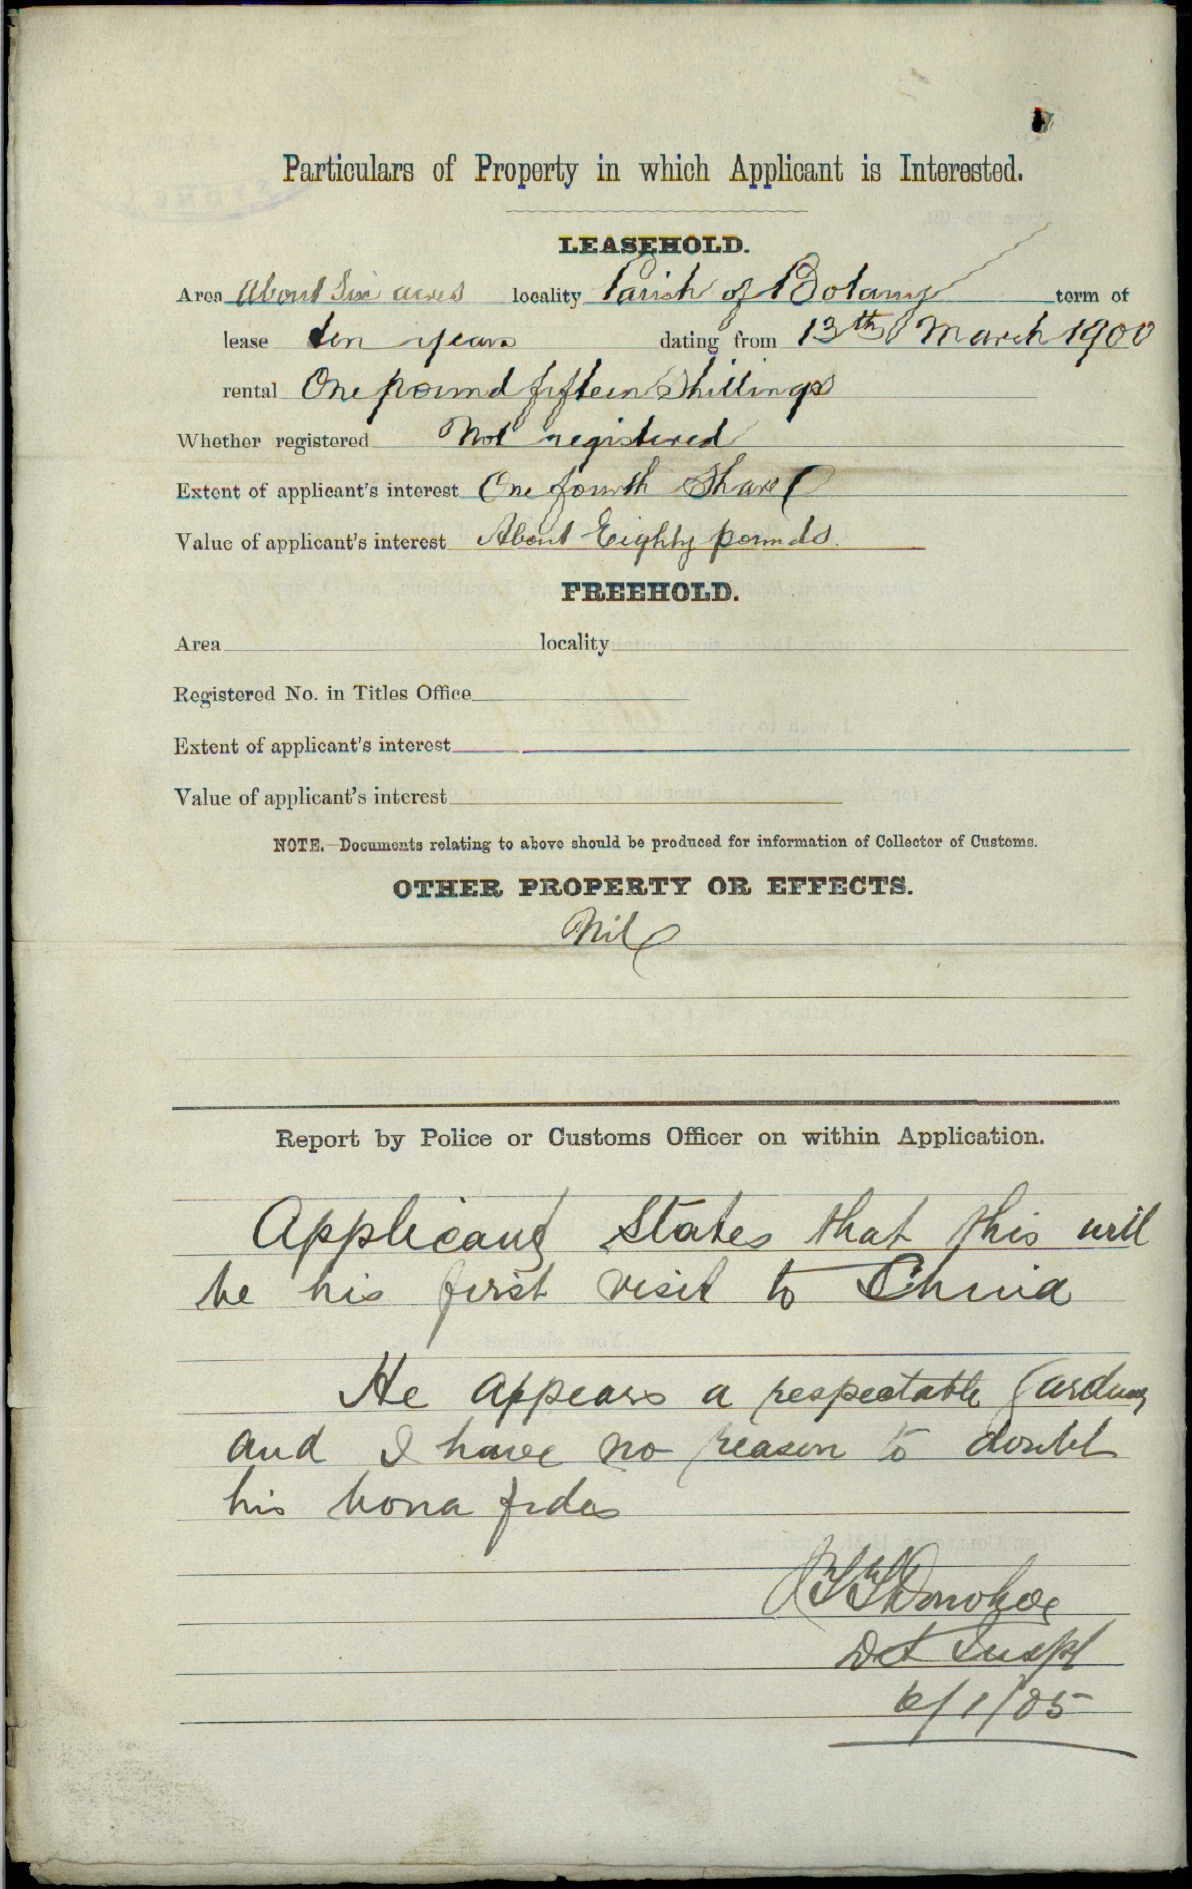 Particulars of Property in which Applicant is Interested.
LEASEHOLD.
Area About Six acres locality Parish of Botany term of
lease ten years dating from 13th March 1900
rental One pound fifteen Shillings
Whether registered Not registered
Extent of applicant's interest One fourth Share
Value of applicant's interest About Eighty pounds.
FREEHOLD.
Area locality
Registered No. in Titles Office
Extent of applicant's interest
Value of applicant's interest
NOTE.—Documents relating to above should be produced for information of Collector of Customs.
OTHER PROPERTY OR EFFECTS.
Nil
Report by Police or Customs Officer on within Application.
Applicant States that this will
be his first visit to China
He appears a respectable Gardener
and I have no reason to doubt
his bona fides
Donohoe
Det Inspt
6/1/05